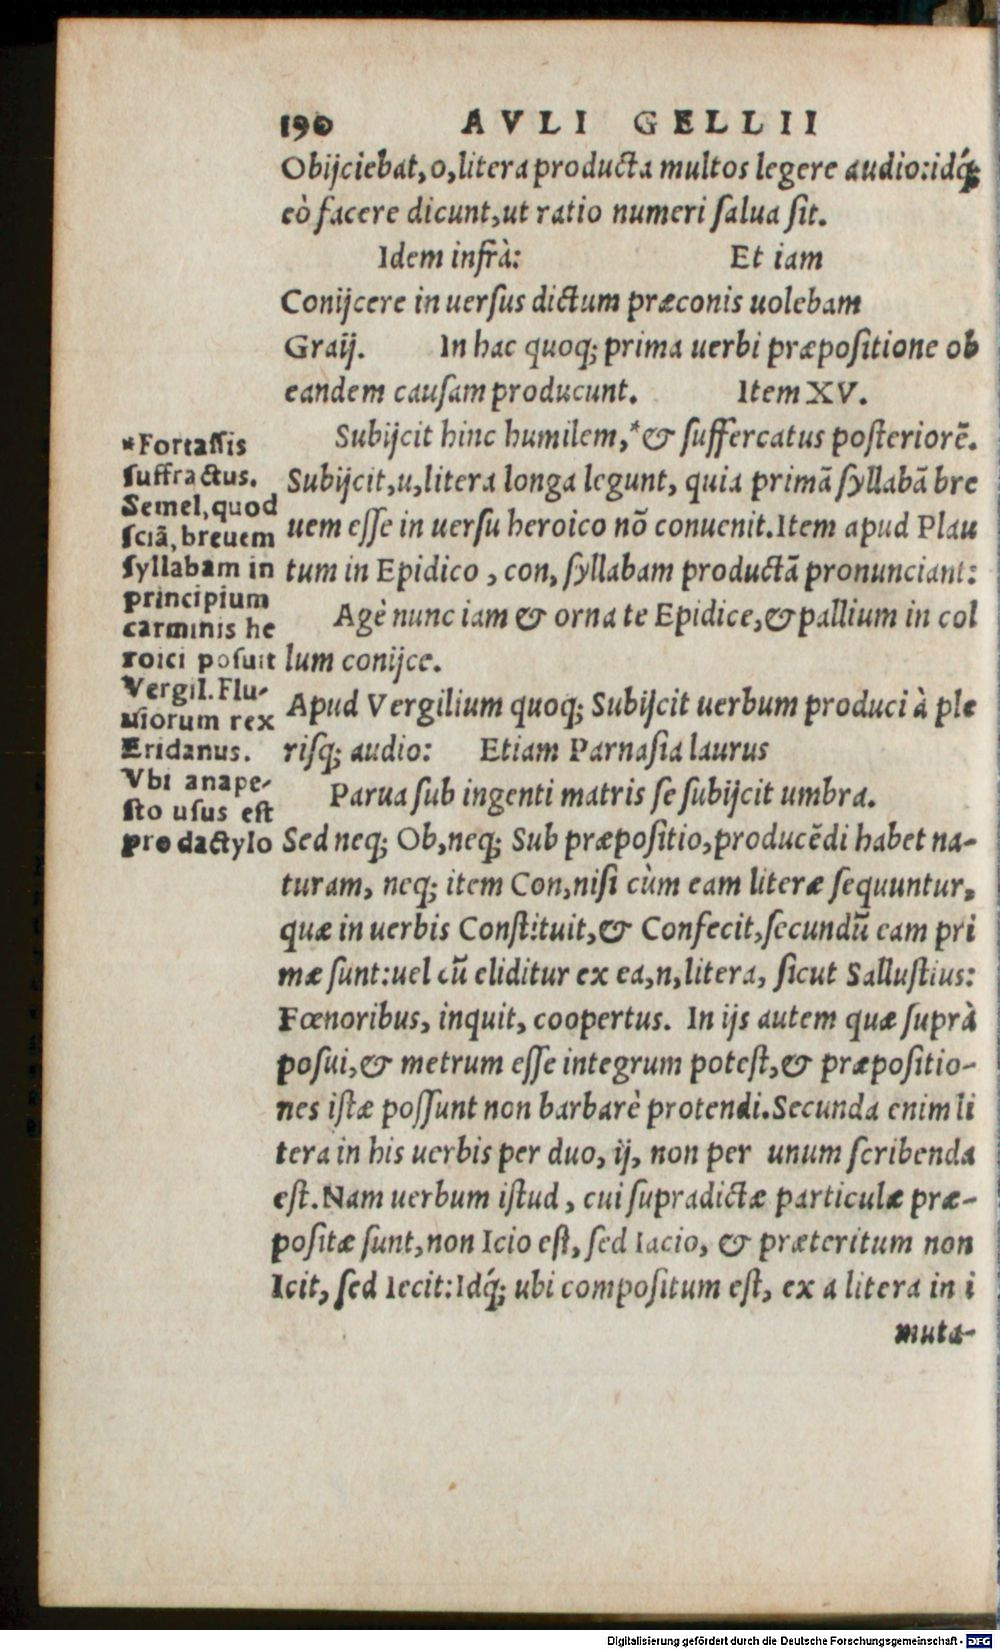 190 AVLI GELLII
Obijciebat, o, litera producta multos legere audio: idq́;
eò facere dicunt, ut ratio numeri ſalua ſit.
Idem infrà: Et iam
Conijcere in uerſus dictum præconis uolebam
Graij. In hac quoq; prima uerbi præpoſitione ob
eandem cauſam producunt. Item XV.
Subijcit hinc humilem,* & ſuffercatus poſteriorē.
Subijcit, u, litera longa legunt, quia primā ſyllabā bre
uem eſſe in uerſu heroico nō conuenit. Item apud Plau
tum in Epidico, con, ſyllabam productā pronunciant:
Agè nunc iam & orna te Epidice, & pallium in col
lum conijce.
Apud Vergilium quoq; Subijcit uerbum produci à ple
riſq; audio: Etiam Parnaſia laurus
Parua ſub ingenti matris ſe ſubijcit umbra.
Sed neq; Ob, neq; Sub præpoſitio, producēdi habet na-
turam, neq; item Con, niſi cùm eam literæ ſequuntur,
quæ in uerbis Conſtituit, & Confecit, ſecundū eam pri
mæ ſunt: uel cū eliditur ex ea, n, litera, ſicut Salluſtius:
Fœnoribus, inquit, coopertus. In ijs autem quæ ſuprà
poſui, & metrum eſſe integrum poteſt, & præpoſitio-
nes iſtæ poſſunt non barbarè protendi. Secunda enim li
tera in his uerbis per duo, ij, non per unum ſcribenda
eſt. Nam uerbum iſtud, cui ſupradictæ particulæ præ-
poſitæ ſunt, non Icio eſt, ſed Iacio, & præteritum non
Icit, ſed Iecit: Idq́; ubi compoſitum eſt, ex a litera in i
muta-
*Fortaſſis
ſuffractus.
Semel, quod
ſciā, breuem
ſyllabam in
principium
carminis he
roici poſuit
Vergil. Flu-
uiorum rex
Eridanus.
Vbi anape-
ſto uſus eſt
pro dactylo
Digitalisierung gefördert durch die Deutsche Forschungsgemeinschaft - DFG